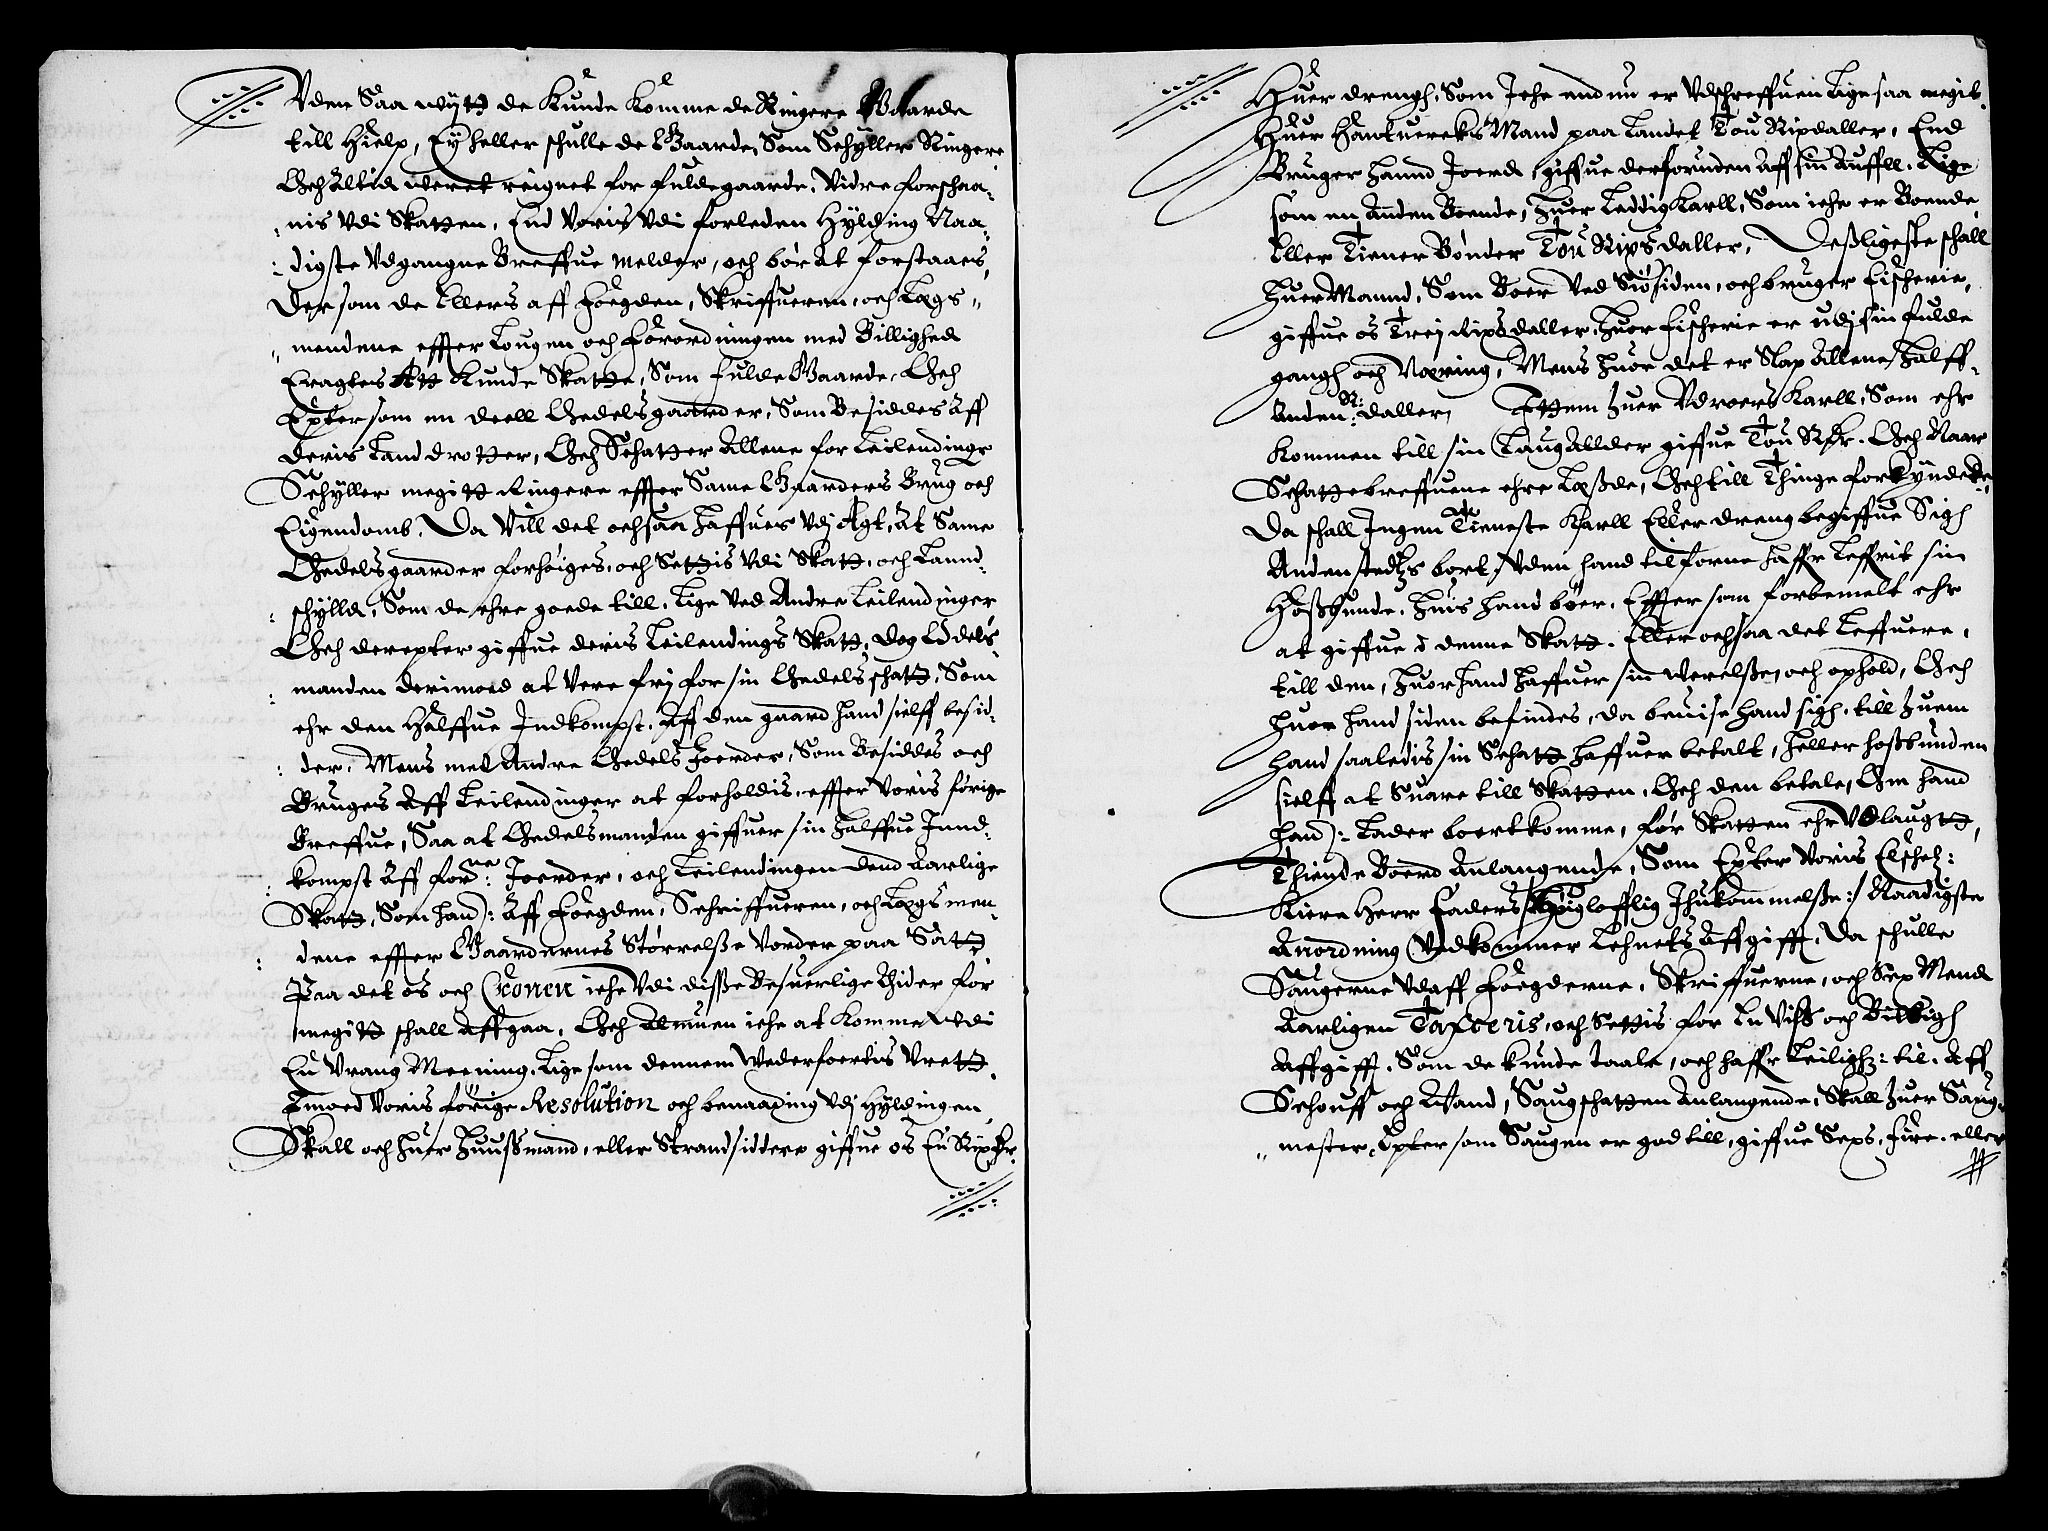 Vden Saa wijtt de Kunde Komme de Ringere Gaarde
till Hielp, Ey heller schulle de Gaarde, Som Schyller Ringere
Och Altid weret reignet for fulde gaarde, Vidre forschaa-
nis Vdi Skatten, End Voris Vdi forleden Hylding Naa-
digste Vdgangne Breffue melder, och bør At forstaaes,
Der som de Ellers aff Foegden, Skriffueren, och Laugs-
mendene effter Lougen och Forordningen med Billighed
Eragtes Att Kunde Skatte, Som fulde Gaarde, Och
Epter som en deell Oedelsgaarder, Som Besiddes Aff
Deris Landdrotter, Och Schatter Allene for Leilendinge
Schyller megitt Ringere effter Same Gaarders Brug och
Eigendomb. Da Vill det ochsaa haffues Vdj Agt, At Same
Oedelsgaarder forhøiges, och Settis Vdi Skatt, och Land-
schylld, Som de ehre goede till, Lige Ved Andre Leilendinger
Och derepter giffue deris Leilendings Skatt, Dog Odels
manden derimoed at Vere frj for sin Oedels schatt, Som
ehr den Halffue Indkompst, Aff den gaard hand sielff besid-
der, Mens med Andre Oedels Joerder, Som Besiddes och
Bruges Aff Leilendinger at forholdis, effter Voris forige
Breffue, Saa at Oedelsmanden giffuer sin halffue Innd-
kompst Aff forne: Joerder, och Leilendingen dend Aarlige
Skatt, Som hand: Aff Foegden, Schriffueren, och Laugs men-
dene effter Gaardernes Størrelse Vorder paa Satt
Paa det os och Cronen iche Vdi disse Besuerlige Tider for
megitt schall Affgaa, Och Almuen iche at Komme Vdi
En Vrang Meening, Lige som dennem Wederfoertis Vrett,
Imoed Voris forige Resolution och benaading Vdj Hyldingen,
Skall och huer Huussmand, eller Strandsiddere giffue os En Rixdr.
Huer drengh, Som Iche end nu er Vdschreffuen Lige saa megit.
Huer Handtuercks Mand paa Landet Tou Rixdaller, End
Bruger hannd Joerd, giffue der foruden Aff sin Auffll. Lige
som en Anden Boende, Huer Leddig Karll, Som iche er Boende
Eller Tiener Bønder Tou Rixsdaller, Desligeste schall
Huer Mannd, Som Boer Ved Siøsiden, och bruger Fischerie,
giffue os Trej Rixsdaller, huor Fischerie er udj sin fulde
gangh och Næring, Mens huor det er Slap Allene halff-
Anden R: daller, Ittem huer Vdroers Karll, Som ehr
Kommen till sin Laug Allder giffue Tou Rdr. Och Naar
Schattebreffuene ehre Læsde, Och till Thinge forkyndede,
Da schall Ingen Tieneste Karll Eller dreng begiffue Sigh
Andenstedtzs bort, Vden hand tilforne haffr Leffrit sin
Hossbunde, huis hand bøer, Effter som forbemelt ehr
at giffue i denne Skatt. Eller ochsaa det Leffuere,
till den, huor hand haffuer sin werelse, och ophold, Och
huor hand siden befindes, da beuise hand sigh, till huem
hand saaledis sin Schatt haffuer betalt, heller hossbunden
sielff at Suare till Skatten, Och den betale, Om hand
hand: Lader boertkomme, før Skatten ehr Vdlaugtt,
Thiende Boerd Anlangende, Som Epter Voris Elschel:
Kiere Herr Faders /: Høigloefflig Ihukommelse :/ Naadigste
Anordning Vedkommer Lehnets Affgifft, Da schulle
Saugerne Vdaff Foegderne, Skriffuerne, och Sex Mend
Aarligen Taxeris, och Settis for En Viss och Billigh
Affgifft, Som de kunde taale, och haffr Leiligh: til. Aff
Schouff och Vand, Saugschatten Anlangende, Skall huer Saug-
mester, Epter som Saugen er god till, giffue Sexs, fire, eller